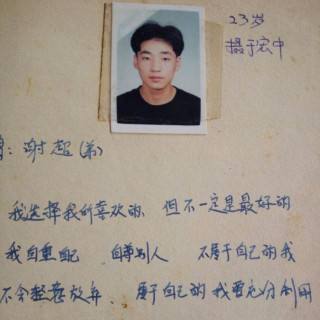 23岁
摄于宏中
：谢超(弟)
我选择我所喜欢的 但不一定是最好的
我自重自己 自尊别人 不属于自己的我
不会轻意放弃. 属于自己的我要充分利用